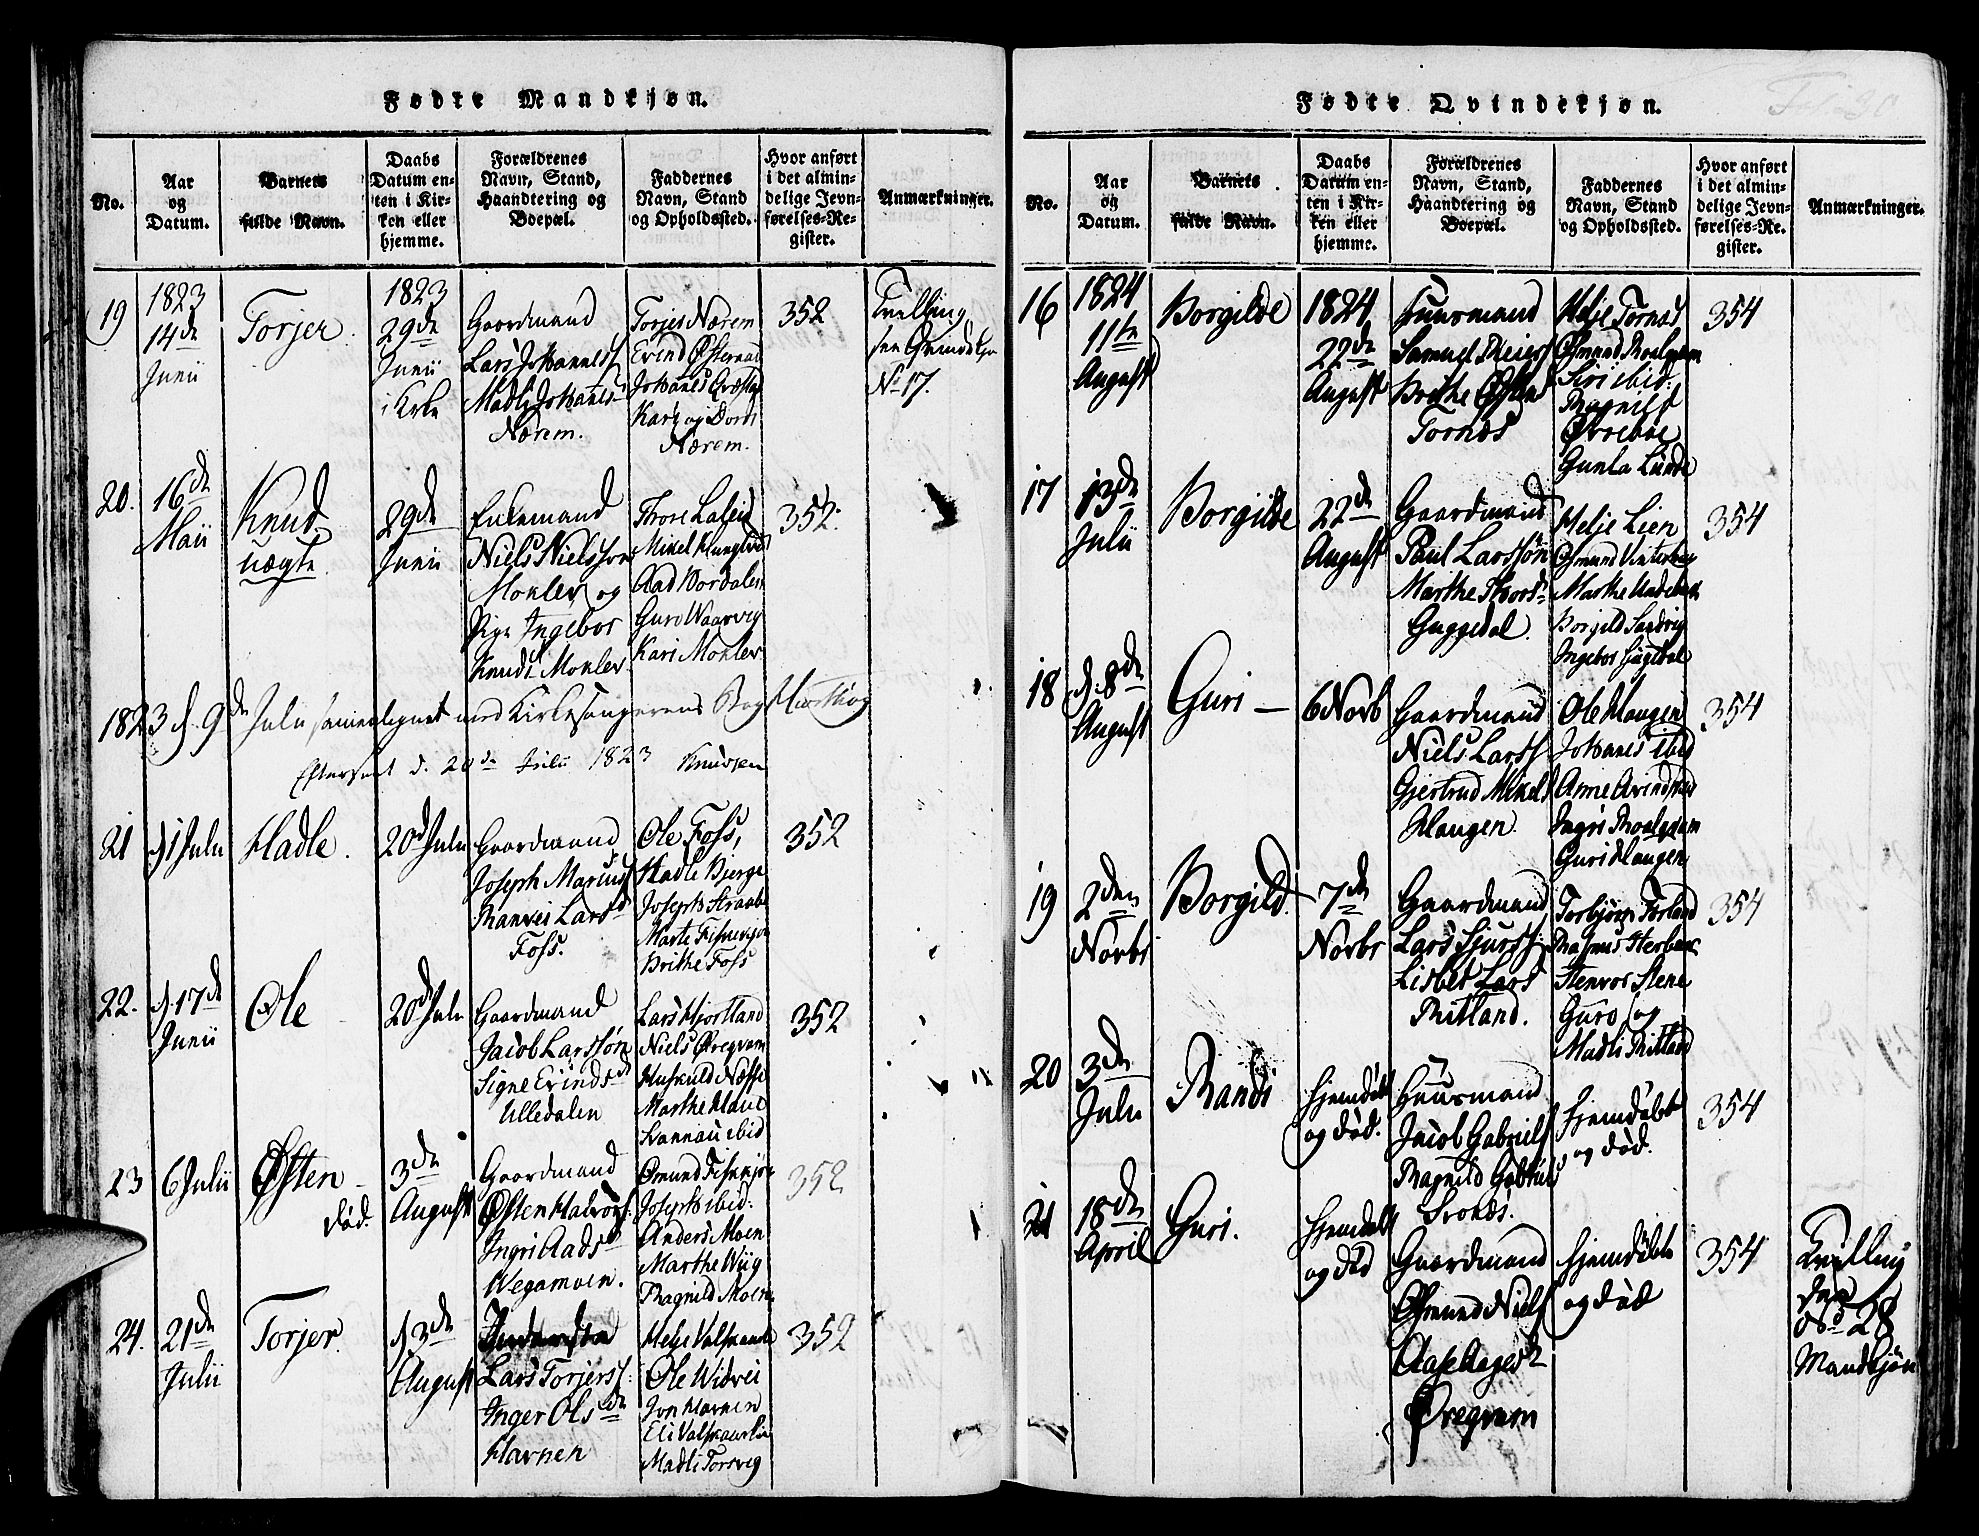 Fødte Mandkjøn.
No.
Aar
og
Datum.
Barnets
fulde Navn.
Daabs
Datum en-
ten i Kir-
ken eller
hjemme.
Forældrenes
Navn, Stand,
Haandtering og
Boepæl.
Faddernes
Navn, Stand
og Opholdssted.
Hvor anført
i det almin-
delige Jevn-
førelses-Re-
gister.
Anmærkninger.
19
1823
14de
Junii
Torjer.
1823
29de
Junii
i Kirke
Gaardmand
Lars Johanness
Madli Johannes
Nærem.
Torjes Nærem
Evind Østernæs
Johannes
Kari og Dorte
Nærem.
352
Tvilling
see Qvindekjøn
No 17.
20.
16de
Maii
Knud
uægte.
29de
Junii
Enkemand
Niels Nielsson
Mohler og
Pige Ingebor
Knuds Mohler
Thore Laleid
Mikel
Aad Bordalen
Guro Waarvig
Kari Mohler
352.
1823 d. 9de Julii samenlegnet med Kirkesangerens Bog
Efterseet d. 20de Julii 1823 Knudsen
21
d 1 Julii
Hadle.
20d Julii
Gaardmand
Joseph Mariuss
Ranvei Larsd
Foss.
Ole Foss,
Hadle Bjerge
Joseph Straabe
Marte
Brithe Foss
352
22.
d. 17de
Junii
Ole
20de Julii
Gaardmand
Jacob Larssøn
Signe Evindsd
Ulledalen
Lars Hjortland
Niels Øregvam
Huskuld Næsse
Marthe
ibid
352
23
6 Julii
Østen
død.
3de
August
Gaardmand
Østen Halvors.
Ingri Aadsd
Wegamoen.
Osmund
Joseph ibid.
Anders Moen
Marthe Wiig
Ragnild Moen
352
24.
21de
Julii
Torjer.
d 3de
August
Lars Torjerss.
Inger Olsdr
Havnen
Helje
Ole Widvei
Jon Havnen
Eli
Madli Torsvig
352
Fødte Qvindekjøn.
No.
Aar
og
Datum.
Barnets
fulde Navn.
Daabs
Datum en-
ten i Kir-
ken eller
hjemme.
Forældrenes
Navn, Stand,
Haandtering og
Boepæl.
Faddernes
Navn, Stand
og Opholdssted.
Hvor anført
i det almin-
delige Jevn-
førelses-Re-
gister.
Anmærkninger.
16
1824
11te
August
Borgilde
1824
22de
August
Huusmand
Samuel Reierss
Brithe Østens
Tornæs
Helje Tornæs
Osmund Roalqvam
Siri ibid.
Ragnild
Øvrebøe
Gunla Lunde
354
17
13de
Julii
Borgilde
22de
August
Gaardmand
Paul Larssøn
Marthe
Guggedal.
Helje Lien
Osmund
Marthe
Borgild Sandvig
Ingebor Gugedal
354
18
d. 8de
August
Guri
6 Novb
Gaardmand
Niels Larss
Gjertrud Mikels
Haugen.
Ole Haugen
Johanes ibid
Anne
Ingri Roalqvam
Guri Haugen
354
19
2den
Novbr
Borgild.
7de
Novbr
Gaardmand
Lars Sjurss
Lisbet Lars
Ritland.
Torbjørn Førland
Rasmus
Stenvor Stene
Guro og
Madli Ritland
354
20
3de
Julii
Randi
hjemdøbt
og død.
Huusmand
Jacob Gabriels
Ragnild
hjemdøbt
og død.
354
21
18de
April
Guri.
hjemdøbt
og død
Gaardmand
Osmund Niels
Aase Aagesd
Øregvam
hjemdøbt
og død
354
Tvilling
see
No 28
Mandkjøn